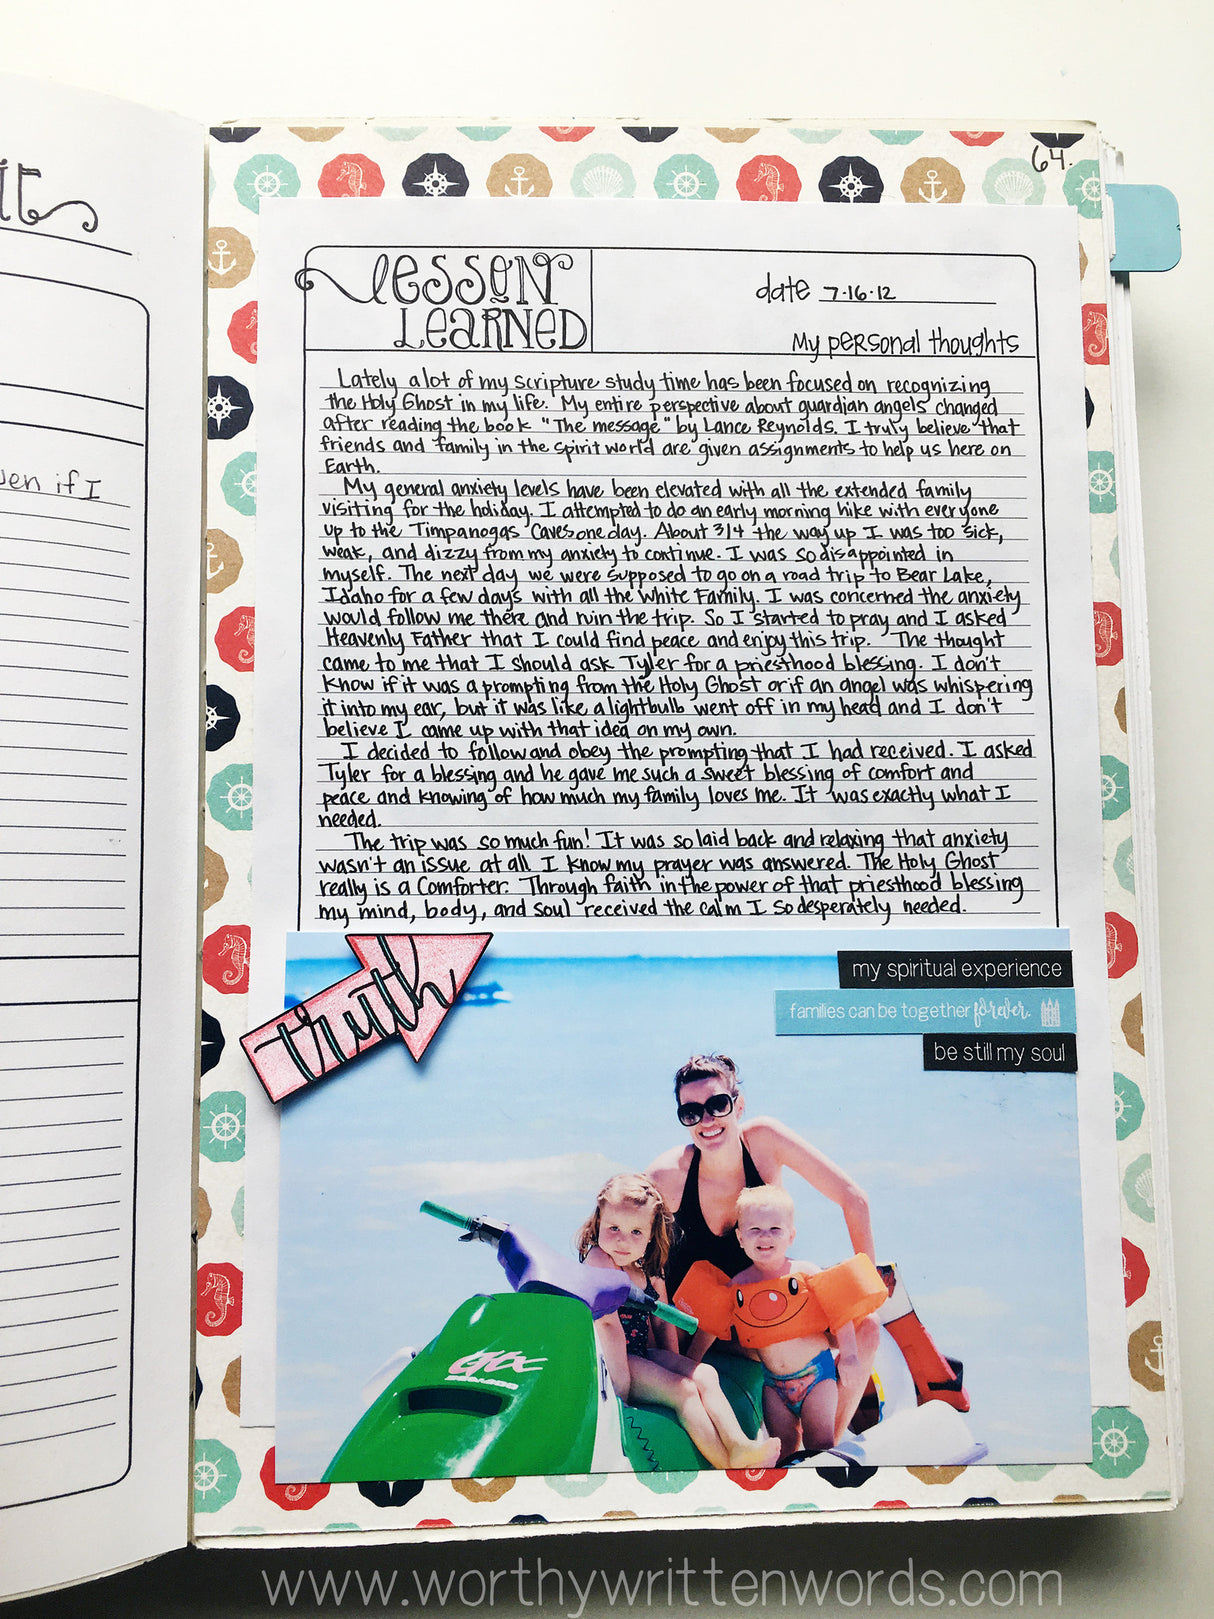 64.
ven if I
Lesson
Learned
date 7.16.12
My personal thoughts
Lately a lot of my scripture study time has been focused on recognizing
the Holy Ghost in my life. My entire perspective about guardian angels changed
after reading the book "The message" by Lance Reynolds. I truly believe that
friends and family in the spirit world are given assignments to help us here on
Earth.
My general anxiety levels have been elevated with all the extended family
visiting for the holiday. I attempted to do an early morning hike with everyone
up to the Timpanogas Caves one day. About 3/4 the way up I was too sick,
weak, and dizzy from my anxiety to continue. I was so disappointed in
myself. The next day we were supposed to go on a road trip to Bear Lake,
Idaho for a few days with all the White Family. I was concerned the anxiety
would follow me there and ruin the trip. So I started to pray and I asked
Heavenly Father that I could find peace and enjoy this trip. The thought
came to me that I should ask Tyler for a priesthood blessing. I don't
know if it was a prompting from the Holy Ghost or if an angel was whispering
it into my ear, but it was like a lightbulb went off in my head and I don't
believe I came up with that idea on my own.
I decided to follow and obey the prompting that I had received. I asked
Tyler for a blessing and he gave me such a sweet blessing of comfort and
peace and knowing of how much my family loves me. It was exactly what I
needed.
The trip was so much fun! It was so laid back and relaxing that anxiety
wasn't an issue at all. I know my prayer was answered. The Holy Ghost
really is a Comforter. Through faith in the power of that priesthood blessing
my mind, body, and soul received the calm I so desperately needed.
Truth
my spiritual experience
families can be together forever.
be still my soul
GTX
SEADOO
www.worthywrittenwords.com